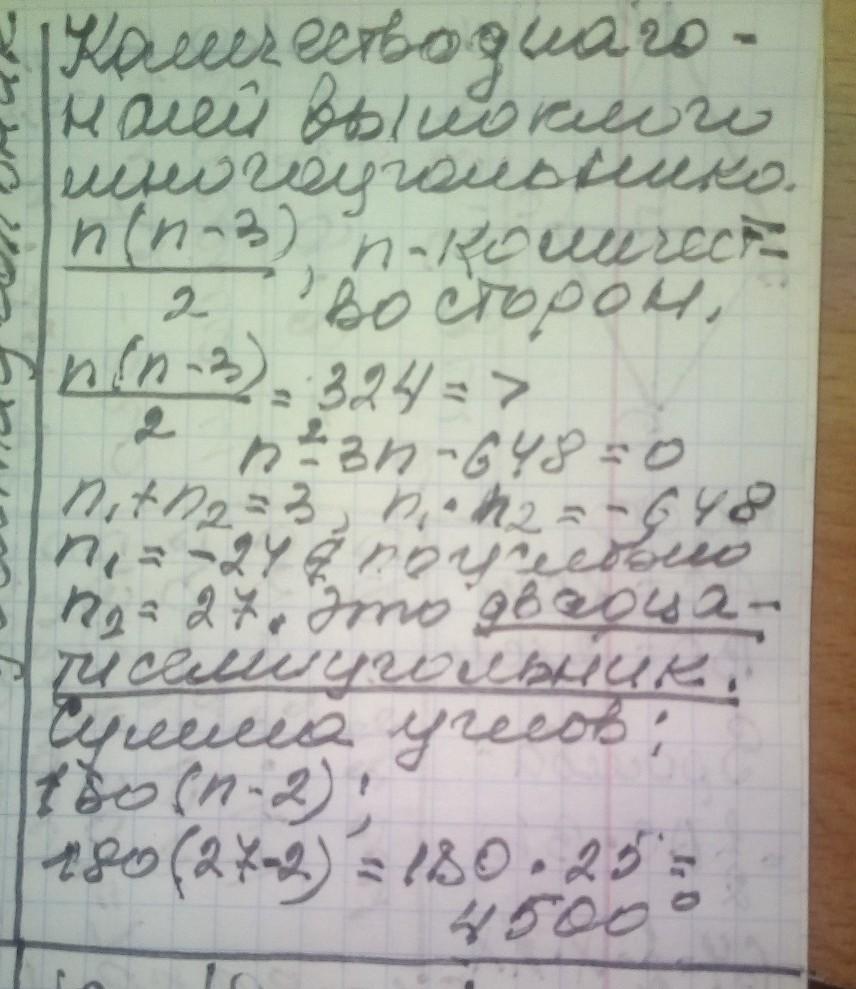 Количество диаго-
налей выпуклого
многоугольника.
n(n-3)/2, n-количест-
во сторон.
n(n-3)/2 = 324 =>
n²-3n-648=0
n₁+n₂=3, n₁·n₂=-648
n₁=-24
n₂=27. Это двадца-
тисемиугольник.
Сумма углов:
180(n-2);
180(27-2)=180·25=
4500°